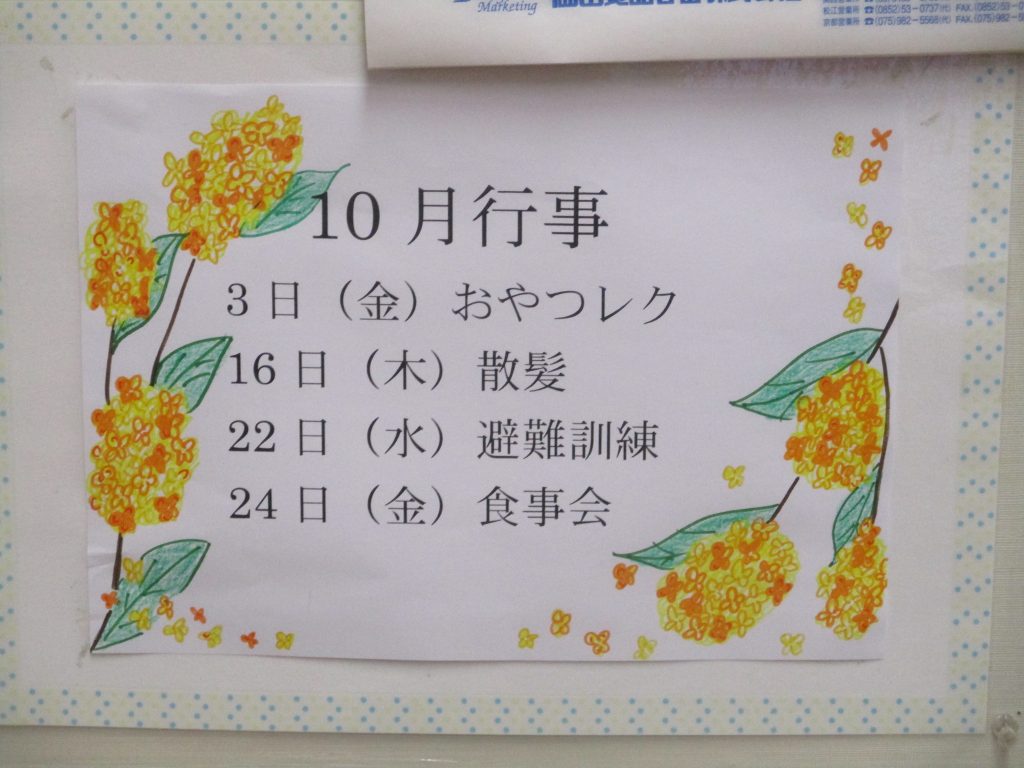 Marketing
松江営業所 ☎(0852)53-0737(代) FAX.(0852)53-0
京都営業所 ☎(075)982-5568(代) FAX.(075)982-5
10月行事
3日（金）おやつレク
16日（木）散髪
22日（水）避難訓練
24日（金）食事会